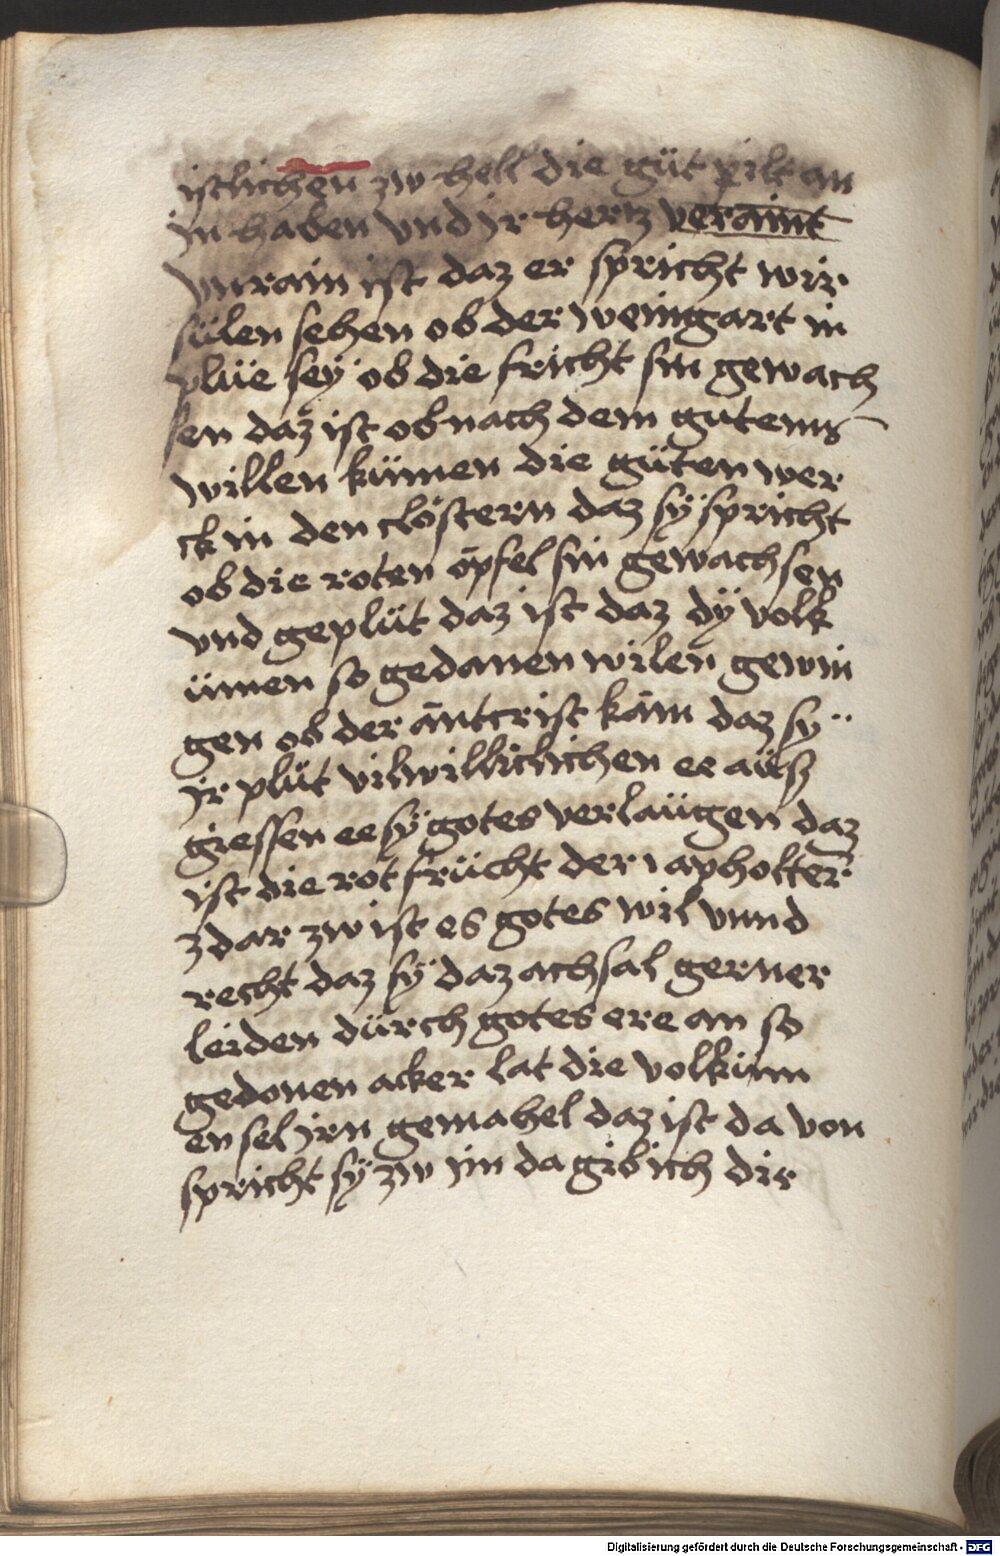 istlichen zw hell die güt pilt an
in haben vnd ir hertz veraint
vnrain ist daz er spricht wir
sülen sehen ob der weingart in
plüe sey ob die fricht sin gewach
sen daz ist ob nach dem gutem
willen kümen die güten wer
ck in den clöstern daz sÿ spricht
ob die roten öpfel sin gewachsen
vnd geplüt daz ist daz dÿ volk
ümen so gedanen wilen gewin
gen ob der äntcrist käm daz sy
ir plüt vilwilliclichen ee aüsz
giessen ee sÿ gotes verlaügen daz
ist die rot frücht der apholter
z dar zw ist es gotes wil vnnd
recht daz sÿ daz achsal gerner
leiden dürch gotes ere an so
gedonen acker lat die volkinn
en sel irn gemahel daz ist da von
spricht sÿ zw im da gib ich dir
Digitalisierung gefördert durch die Deutsche Forschungsgemeinschaft - DFG